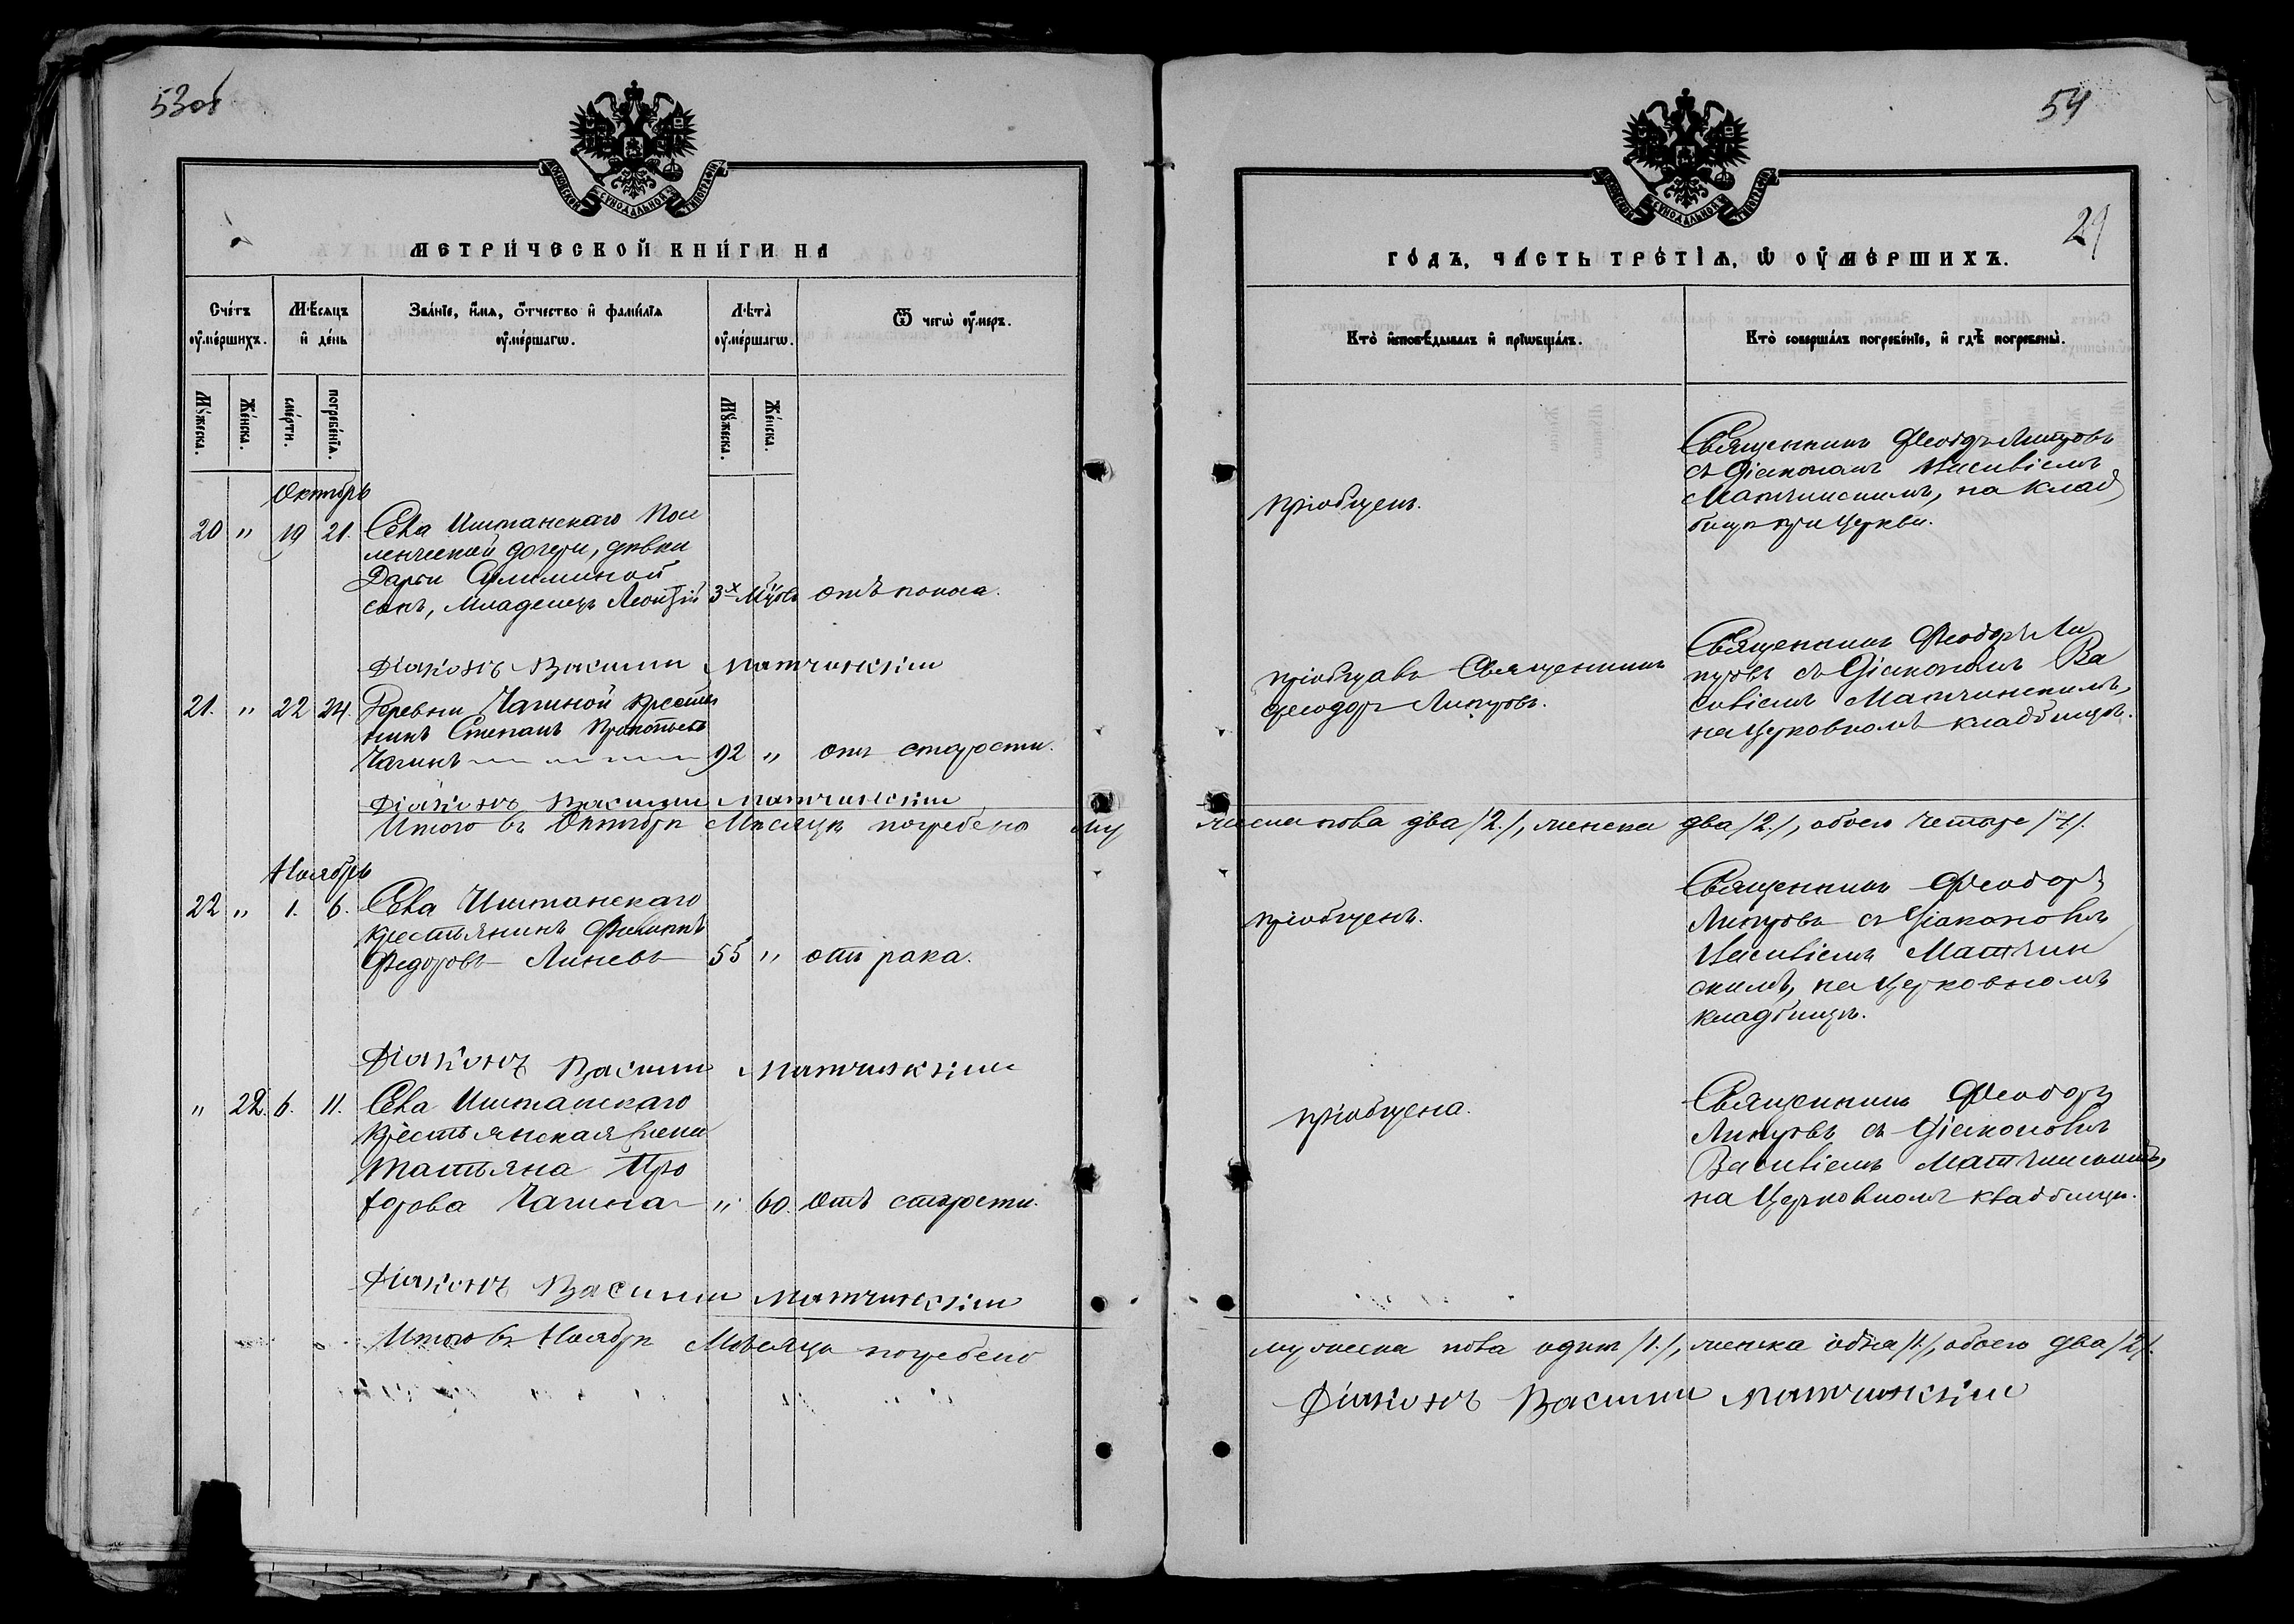 53об
МОСКОВСКОЙ СѴНОДАЛЬНОЙ ТИПОГРАФІИ
МЕТРИ́ЧЕСКОЙ КНИ́ГИ НА
Сче́тъ ᲂу҆ме́ршихъ.
Мѣ́сѧцъ и҆ де́нь
Зва́нїе, и҆́мѧ, ѻ҆́тчество и҆ фами́лїѧ ᲂу҆ме́ршагѡ.
Лѣта̀ ᲂу҆ме́ршагѡ.
Ѿ чегѡ̀ ᲂу҆́меръ.
Мꙋ́жеска.
Же́нска.
сме́рти.
погребе́нїѧ.
Мꙋ́жеска.
Же́нска.
Октябрь
20 " 19 21. Села Иштанскаго Посе
ленческой дочери, дѣвки
Дарьи
сынъ, младенецъ Леонтій 3х мѣсяц. отъ поноса.
Діаконъ Василий Матчинскій
21. " 22 24. Деревни Чагиной крестья
нинъ Степанъ Прокопьевъ
Чагинъ 92 " отъ старости.
Діаконъ Василий Матчинскій
Итого въ Октябрѣ Мѣсяцѣ погребено му
Ноябрь
22 " 1. 6. Села Иштанскаго
крестьянинъ Филиппъ
Федоровъ Линевъ 55 " отъ рака.
Діаконъ Василий Матчинскій
" 22. 6. 11. Села Иштанскаго
Крестьянская жена
Татьяна Про
хорова Чагина " 60. Отъ старости.
Діаконъ Василий Матчинскій
Итого въ Ноябрѣ Мѣсяцѣ погребено
54
МОСКОВСКОЙ СѴНОДАЛЬНОЙ ТИПОГРАФІИ
29
ГО́ДЪ, ЧА́СТЬ ТРЕ́ТЇѦ, Ѡ҆ ОУ҆МЕ́РШИХЪ.
Кто̀ и҆сповѣ́дывалъ и҆ прїѡбща́лъ.
Кто̀ соверша́лъ погребе́нїе, и҆ гдѣ̀ погребены̀.
пріобщенъ.
Священникъ Феодоръ
съ Діакономъ Василіемъ
Матчинскимъ, на клад
бищѣ при Церкви.
пріобщавъ Священникъ
Феодоръ
Священникъ Феодоръ
съ Діакономъ Ва
силіемъ Матчинскимъ,
на Церковномъ кладбищѣ.
жеска пола два /2./, женска два /2./, обоего четыре /4/.
пріобщенъ.
Священникъ Феодоръ
съ Діакономъ
Василіемъ Матчин
скимъ, на Церковномъ
кладбищѣ.
пріобщена.
Священникъ Феодоръ
съ Діакономъ
Василіемъ Матчинскимъ,
на Церковномъ кладбищѣ.
мужеска пола одинъ /1./, женска одна /1./, обоего два /2/.
Діаконъ Василий Матчинскій